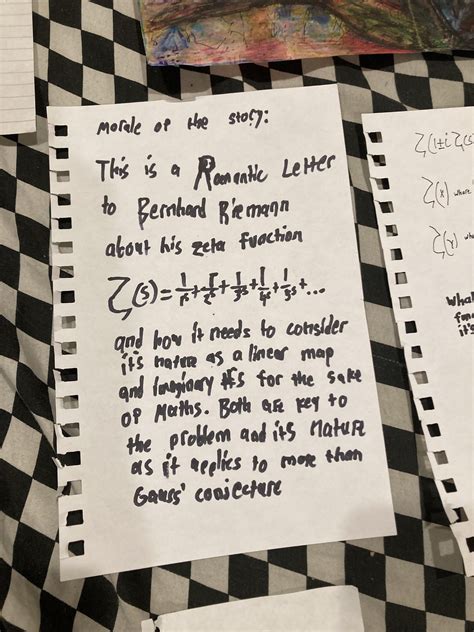 morale of the story:
This is a Romantic Letter
to Bernhard Riemann
about his zeta function
ζ(s)=1/1ˢ+1/2ˢ+1/3ˢ+1/4ˢ+1/5ˢ+...
and how it needs to consider
it's nature as a linear map
and Imaginary #s for the sake
of Maths. Both are key to
the problem and its Mature
as it applies to more than
Gauss' conjecture
ζ(1±i
ζ(x) where
ζ(y)
What
fun
it's